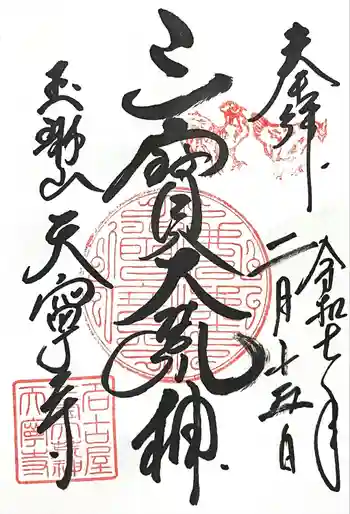 奉拝
令和七年
二月十五日
三寳大荒神
玉琳山
天寧寺
名古屋
天寧寺